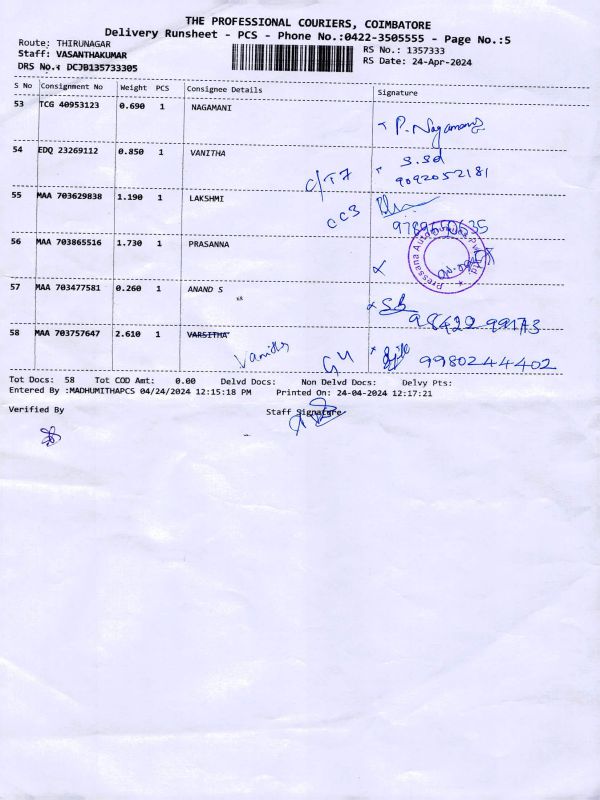 THE PROFESSIONAL COURIERS, COIMBATORE
Delivery Runsheet - PCS - Phone No.:0422-3505555 - Page No.:5
Route: THIRUNAGAR RS No.: 1357333
Staff: VASANTHAKUMAR RS Date: 24-Apr-2024
DRS No.: DCJB135733305
S No Consignment No Weight PCS Consignee Details Signature
53 TCG 40953123 0.690 1 NAGAMANI
P. Nagamani
54 EDQ 23269112 0.850 1 VANITHA S.Sd
C/T7 9092052181
55 MAA 703629838 1.190 1 LAKSHMI
CC3
56 MAA 703865516 1.730 1 PRASANNA
Pressana Auto
57 MAA 703477581 0.260 1 ANAND S
98422 99173
58 MAA 703757647 2.610 1 VARSITHA
9980244402
Tot Docs: 58 Tot COD Amt: 0.00 Delvd Docs: Non Delvd Docs: Delvy Pts:
Entered By :MADHUMITHAPCS 04/24/2024 12:15:18 PM Printed On: 24-04-2024 12:17:21
Verified By Staff Signature